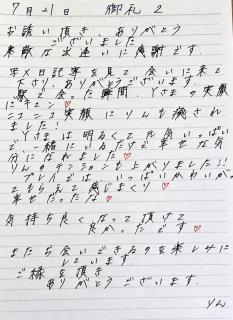 7月21日 御礼 2
お誘い頂き、ありがとう
ございました
素敵な出逢いに感謝です.
写メ日記等を見て 会いに来て
下さり、ありがとうございます.
駅で会った瞬間 Yさまの笑顔
にキュン♡
ニコニコ笑顔に りんも癒され
ました
Yさまは明るくて優しい
で 一緒にいるだけで幸せな気
分になれました♡
りんのテンションも上がりました!!
プレイでは いっぱいかわいがっ
てもらえて 感じまくり♡
幸せだった♡
気持ち良くなって頂けて
良かったです♡
またお会いできるのを楽しみに
しています.
ご縁を頂き
ありがとうございます.
りん